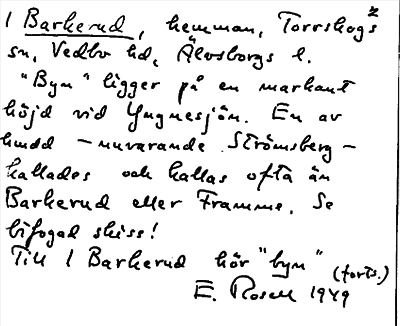 1 Barkerud, hemman, Torrskogs
sn, Vedbo hd, Älvsborgs l.
"Byn" ligger på en markant
höjd vid Yngnesjön. En av
hudd – nuvarande Strömsberg –
kallades och kallas ofta än
Barkerud eller Framme. Se
bifogad skiss!
Till 1 Barkerud hör "byn"
(forts.)
E. Rosell 1949